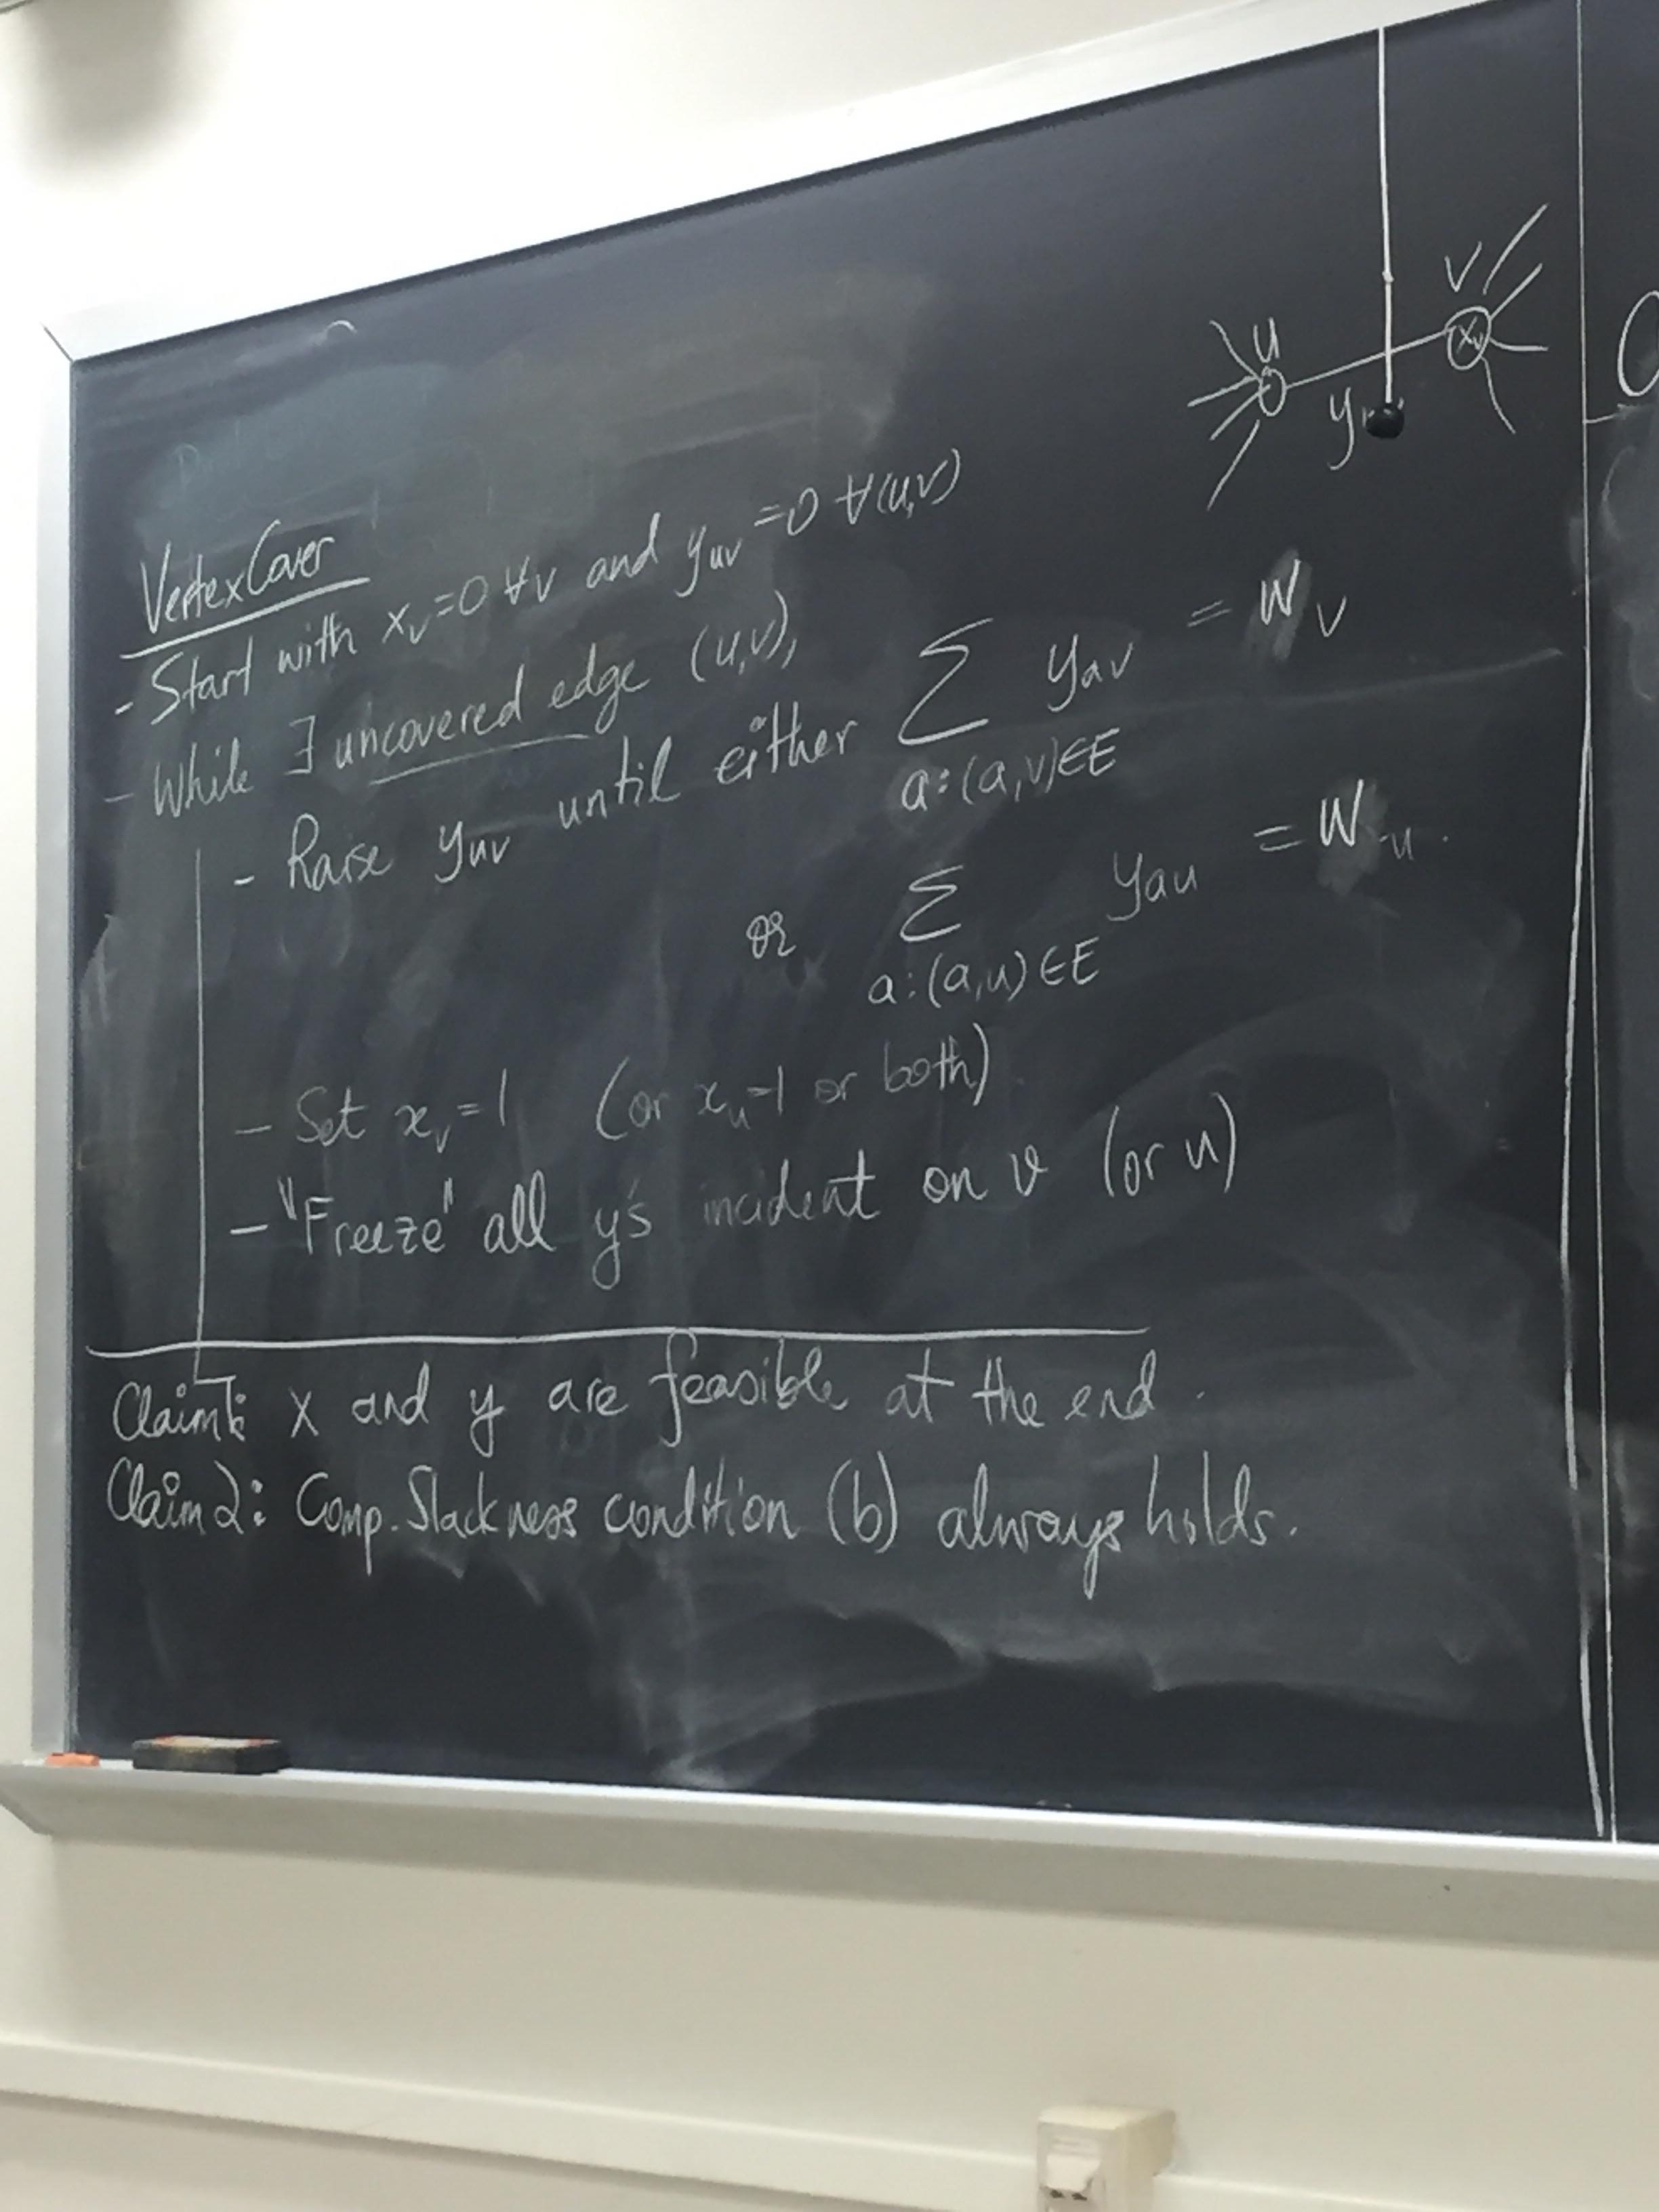 u
v
x_v
y
VertexCover
- Start with x_v=0 ∀v and y_uv=0 ∀(u,v)
- While ∃ uncovered edge (u,v),
- Raise y_uv until either Σ y_av = W_v
a:(a,v)∈E
or Σ y_au = W_u.
a:(a,u)∈E
- Set x_v=1 (or x_u=1 or both)
- "Freeze" all y's incident on v (or u)
Claim1: x and y are feasible at the end.
Claim2: Comp. Slackness condition (b) always holds.